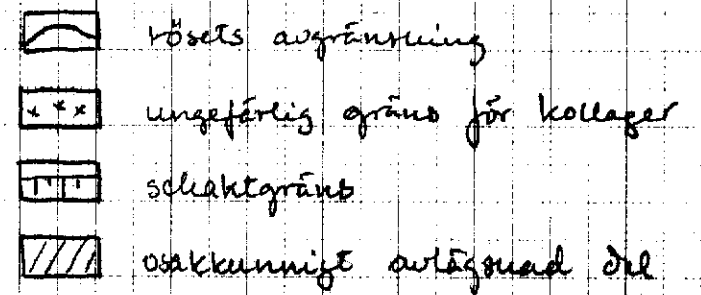 rösets avgränsning
ungefärlig gräns för kollager
schaktgräns
osakkunnigt avlägsnad del